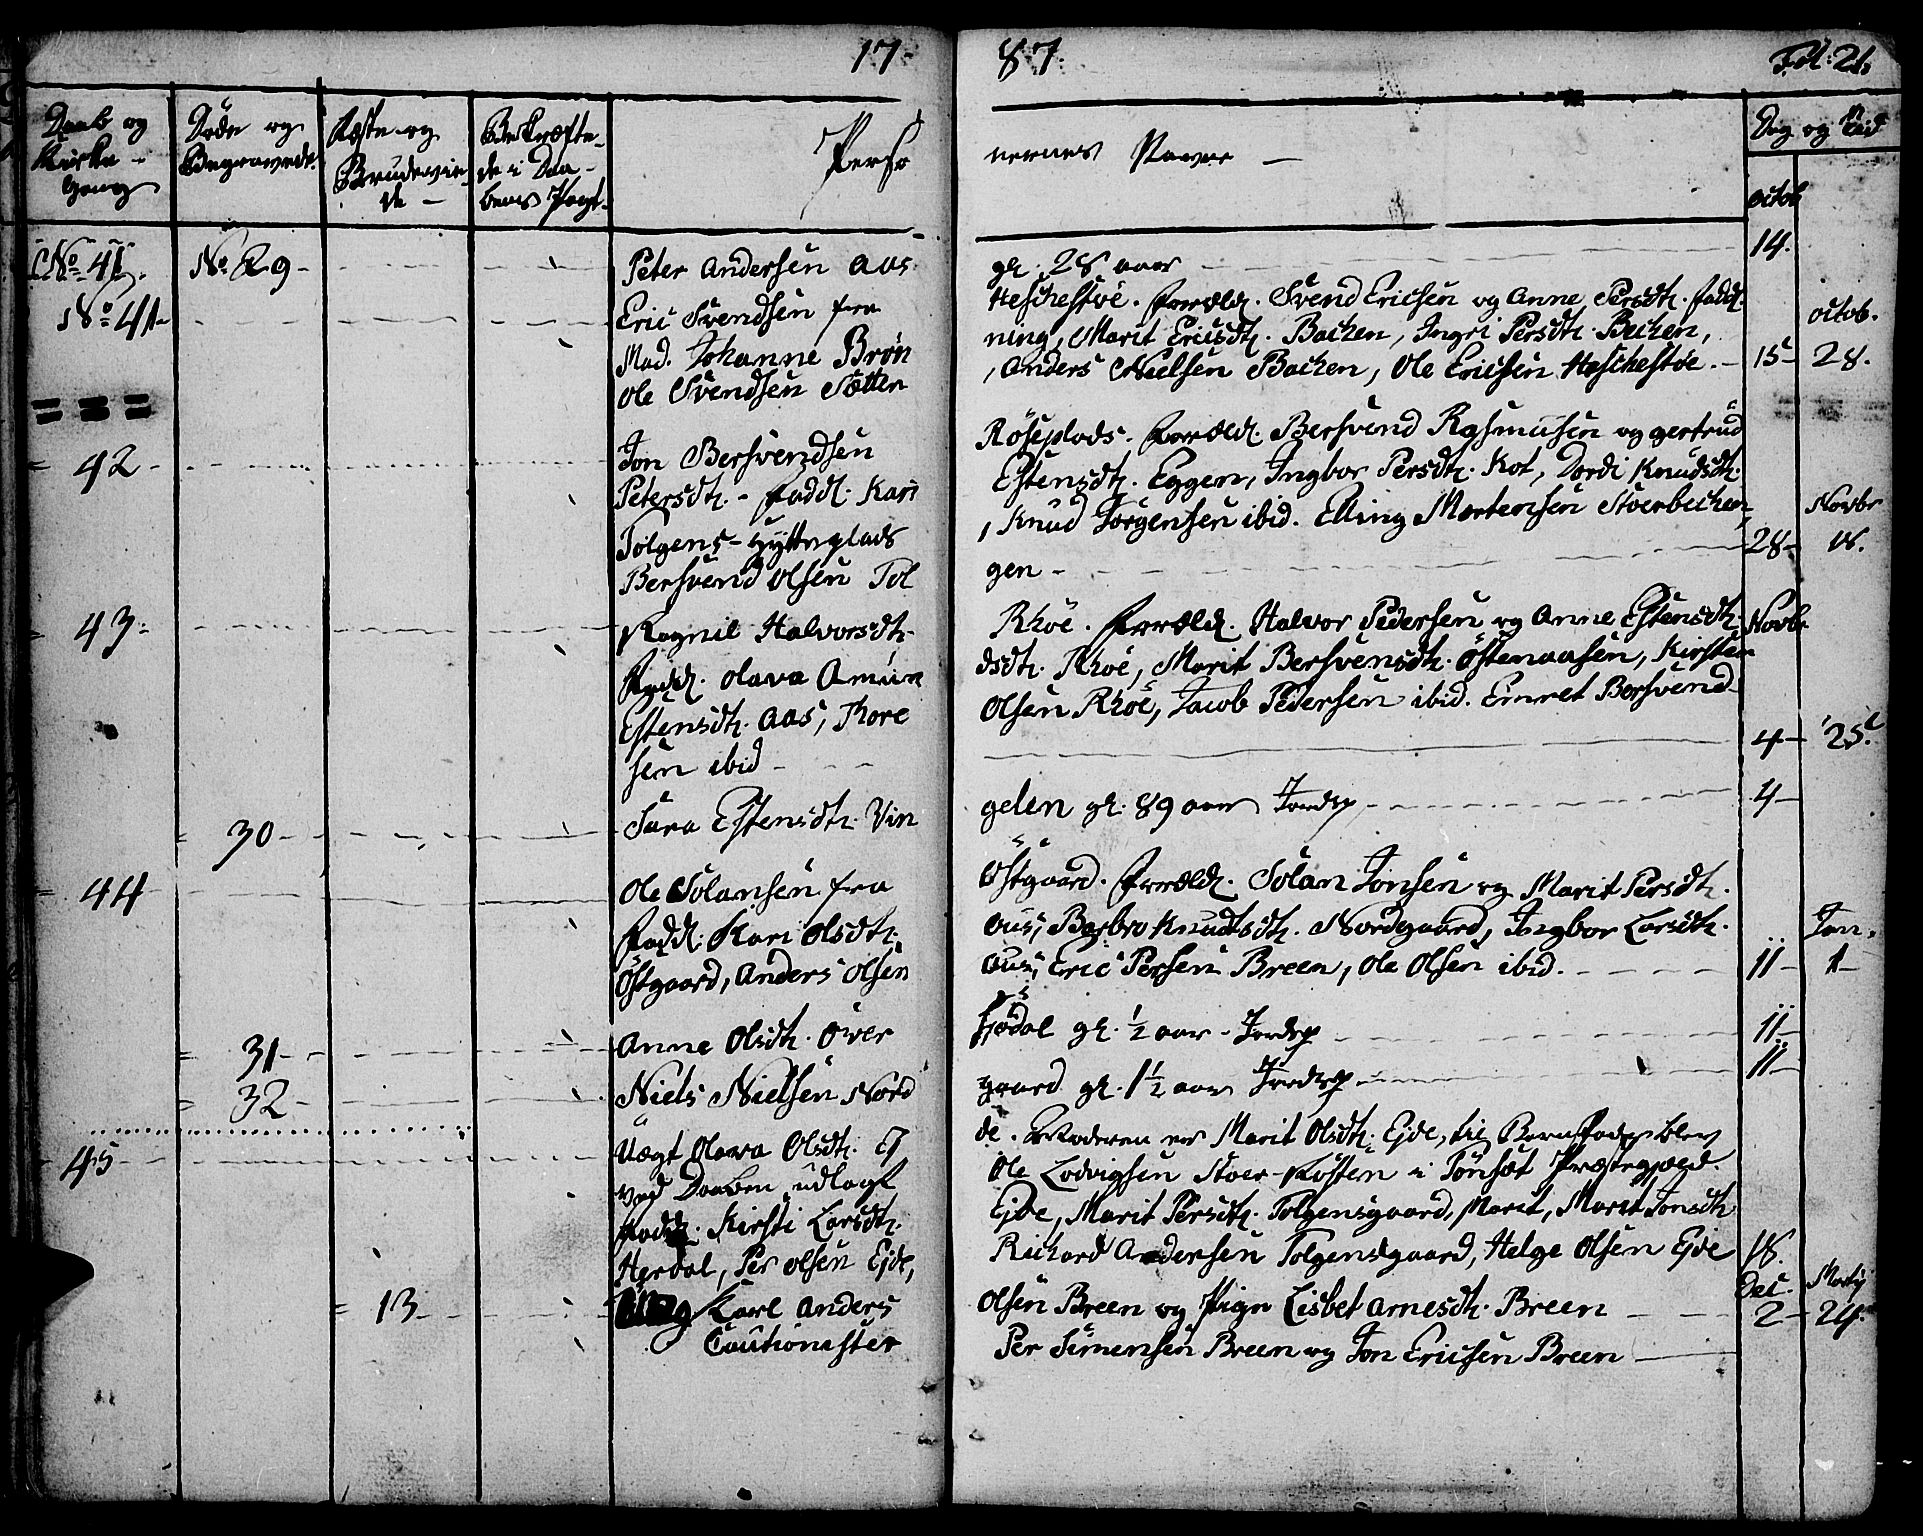 17 87 Fol: 21.
Daab og Kirke-Gang
Døde og Begravede.
Fæste og Brudeviede
Bekræftede i Daabens Pagt
Personernes Navne
Dag og Tid
octob
No 41. No 29 Peter Andersen Aas gl. 28 aar 14.
No 41 Eric Svendsen fra Heschestöe. Foræld. Svend Ericsen og Anne Persdtr. fadd. octob.
Mad. Johanne Brönning, Marit Ericsdtr. Bachen, Ingri Persdtr. Bechen,
Ole Svendsen Sætten, Anders Nielsen Bachen, Ole Ericsen Heschestöe. 15 28.
42 Jon Bersvendsen Röseplads. Foræld. Bersvend Rasmusen og gertrud
Petersdtr. Fadd. Kari Estensdtr. Eggen, Ingbor Persdtr. Kot, Dordi Knudsdtr.
Tolgens-Hytteplads, Knud Jörgensen ibid. Elling Mortensen Stoerbechen, Novbr
Bersvend Olsen Tolgen 28 18.
43 Ragnil Halvorsdtr. Rhöe. Foræld. Halvor Pedersen og Anne Estensdtr. Novbr
Fadd. Olava Amundsdtr. Rhöe, Marit Bersvensdtr. Östenaasen, Kirsten
Estensdtr. Aas, Thore Olsen Rhöe, Jacob Pedersen ibid. Emret Bersvend-
sen ibid 4 25.
30 Sara Estensdtr. Vingelen gl. 89 aar Jordsp 4
44 Ole Solansen fra Östgaard. Foræld. Solan Jonsen og Marit Persdtr.
Fadd. Kari Olsdtr. Aus, Barbro Knudtsdtr. Nordgaard, Ingbor Larsdtr. Jan.
Östgaard, Anders Olsen Aus, Eric Persen Breen, Ole Olsen ibid. 11 1
31 Anne Olsdtr. Över Fjödal gl. 1/2 aar Jordsp 11
32 Niels Nielsen Nordgaard gl. 1 1/2 aar Jordsp 11
45 Uægt Olava Olsdtr. Ejde. Moderen er Marit Olsdtr. Ejde, til Barnefader blev
ved Daaben udlagt Ole Lodvigsen Stoer-Fösten i Tönset Præstegjæld.
Fadd. Kirsti Larsdtr. Ejde, Marit Persdtr. Tolgensgaard, Marit, Marit Jonsdtr
Herdal, Per Olsen Ejde, Richard Andersen Tolgensgaard, Helge Olsen Ejde 18.
Dec. Martij
13 Karl Anders Olsen Breen og Pige Lisbet Arnesdtr. Breen 2 24.
Cautionister Per Simensen Breen og Jon Ericsen Breen